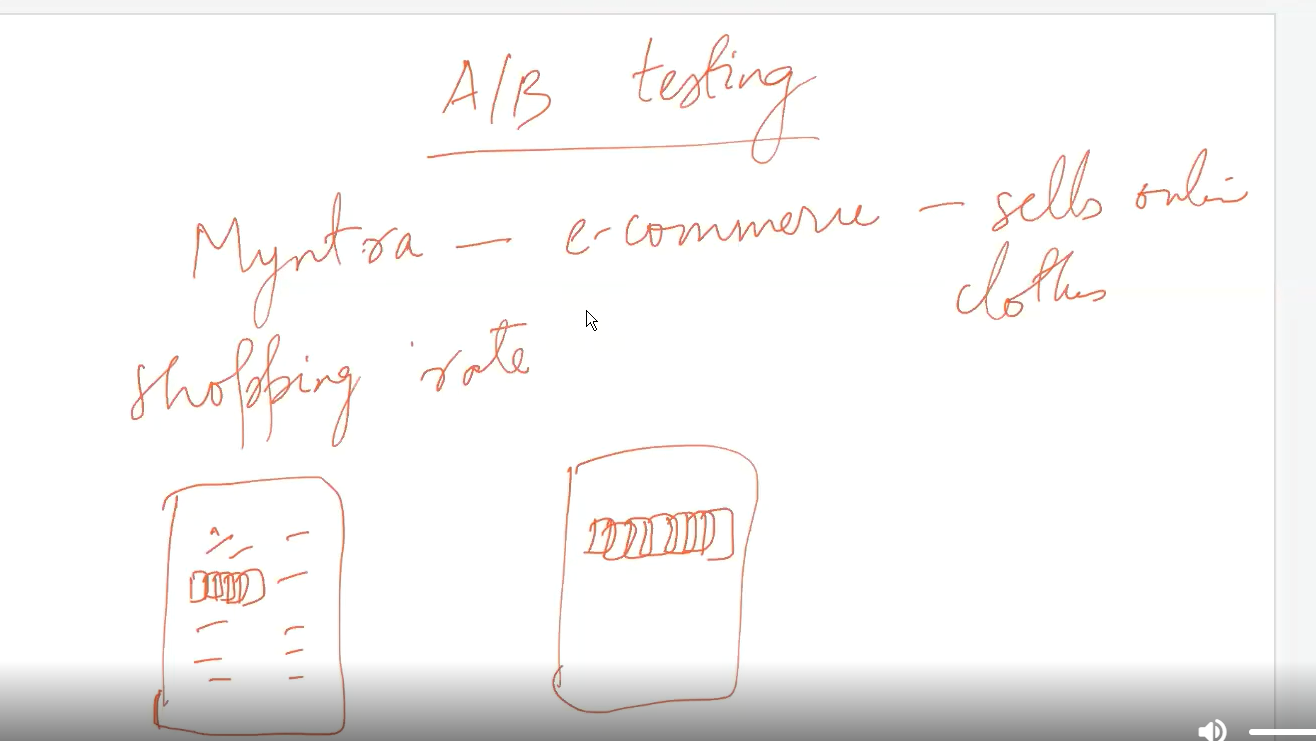 A/B testing
Myntra — e-commerce — sells online
clothes
shopping rate